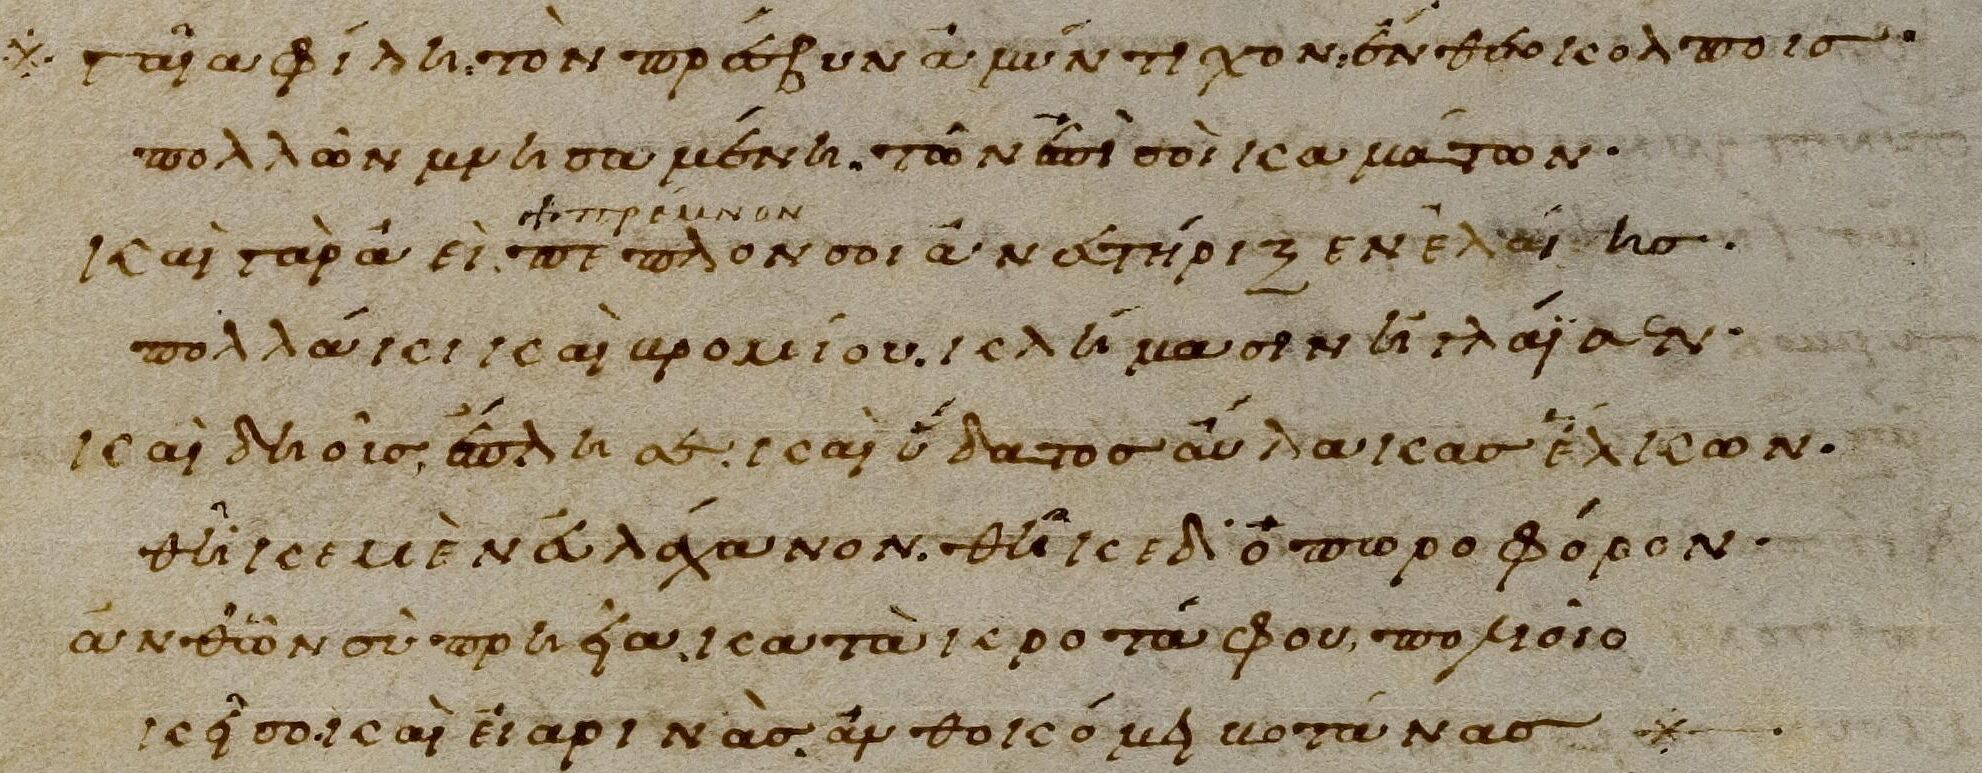 γαῖα φίλη· τὸν πρέσβυν ἀμύντιχον· ἔνθεο κόλποισ·
πολλῶν μνησαμένη· τῶν ἐπὶ σοὶ καμάτων·
πρέμνον
καὶ γὰρ ἀεὶ πέπλον σοι ἀνεστήριξεν ἐλαίησ·
πολλάκι καὶ βρομίου· κλήμασιν ἠγλάϊσεν·
καὶ δηοῖσ, ἔπλησε· καὶ ὕδατοσ αὔλακασ ἕλκων·
θῆκε μὲν εὐλάχανον· θῆκε δ' ὀπωροφόρον·
ἀνθ' ὧν σὺ πρηεῖα· κατὰ κροτάφου, πολιοῖο
κεῖσο· καὶ εἰαρινὰσ ἀνθοκόμει βοτάνασ